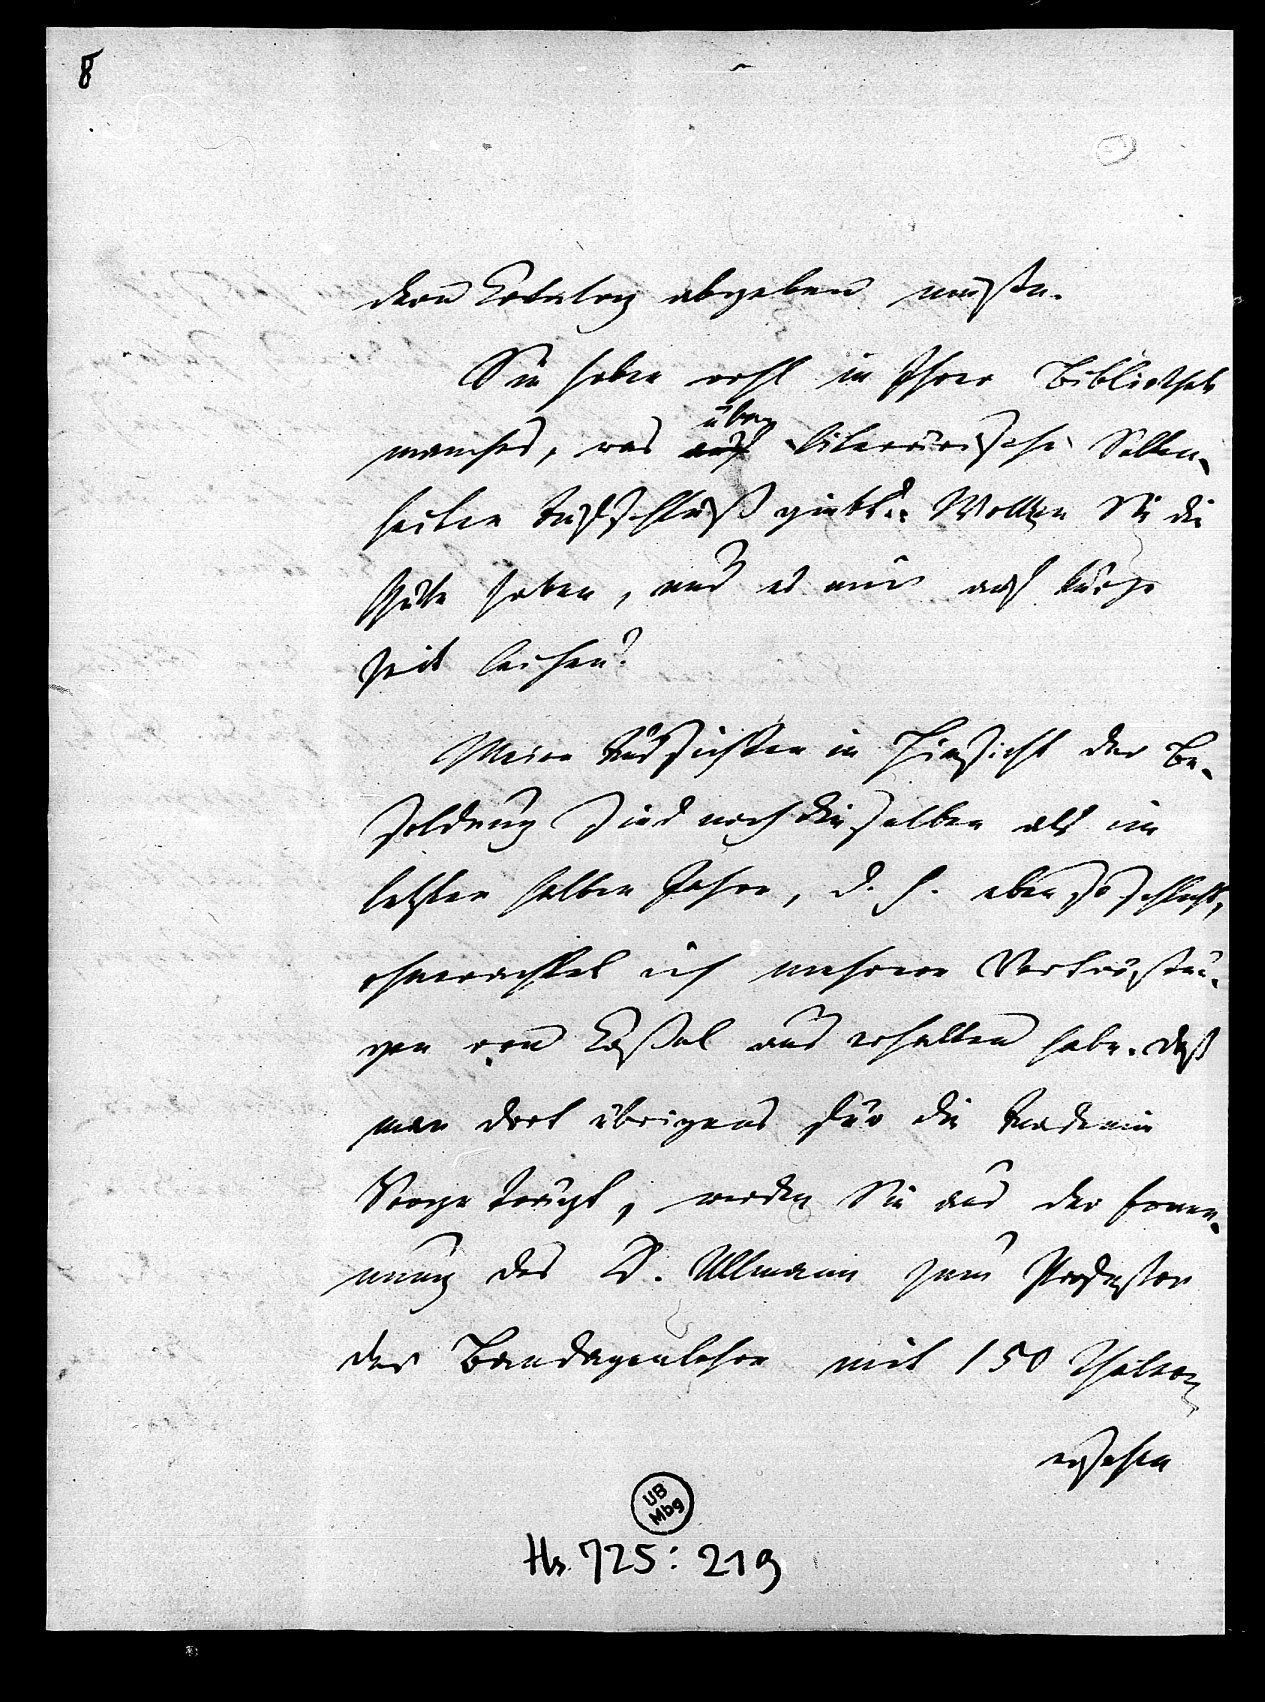 8
dem Catalog abgeben mußte.
Sie haben wohl in Ihrer Bibliothek
über
manches, was auf literarische Selten-
heiten Aufschluß giebt. Wollten Sie die
Güte haben, und es mir auf kurze
Zeit leihen?
Meine Aussichten in Hinsicht der Be-
soldung sind noch dieselben als im
letzten halben Jahre, d. h. eben so schlecht,
ohnerachtet ich mehrere Vertröstun-
gen von Caßel aus erhalten habe. Daß
man dort übrigens für die Academie
Sorge trägt, werden Sie aus der Ernen-
nung des D. Ullmann zum Profeßor
der Bandagenlehre mit 150 Thalern
ersehen
UB
Mbg
Hs. 725: 219